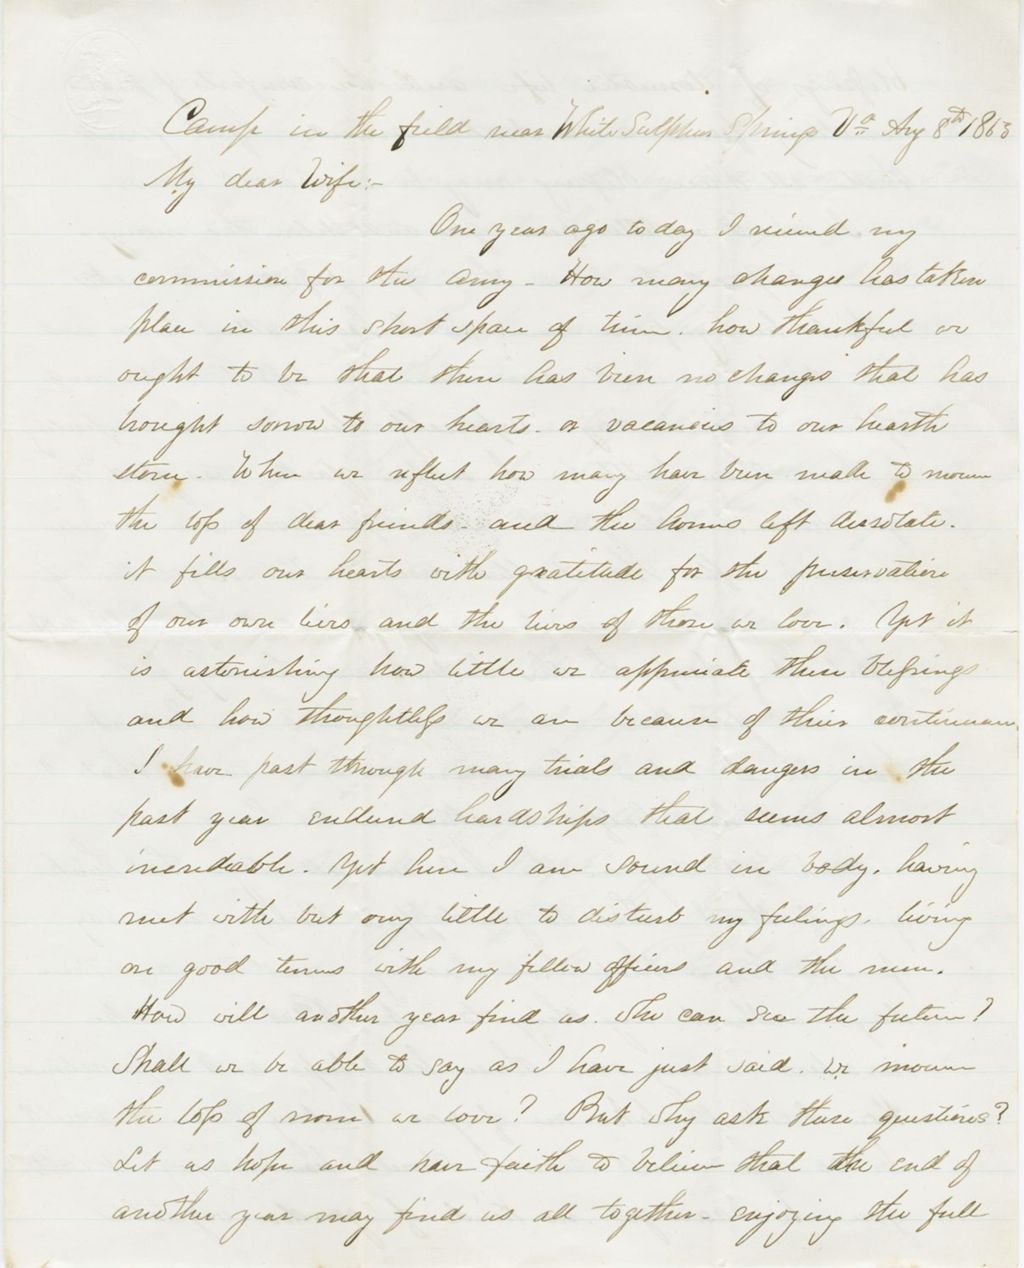 Camp in the field near White Sulphur Springs Va Aug 8th 1863
My dear Wife:-
One year ago today I received my
commission for the Army - How many changes has taken
place in this short space of time. how thankful we
ought to be that there has been no changes that has
brought sorrow to our hearts. or vacancies to our hearth
stone. When we reflect how many have been made to mourn
the loss of dear friends and the homes left desolate.
it fills our hearts with gratitude for the preservation
of our own lives and the lives of those we love. Yet it
is astonishing how little we appreciate these blessings
and how thoughtless we are because of their continuance.
I have past through many trials and dangers in the
past year endured hardships that seems almost
incredeable. Yet here I am sound in body. having
met with but very little to disturb my feelings. living
on good terms with my fellow officers and the men.
How will another year find us. Who can see the future?
Shall we be able to say as I have just said. we mourn
the loss of none we love? But why ask these questions?
Let us hope and have faith to believe that the end of
another year may find us all together - enjoying the full